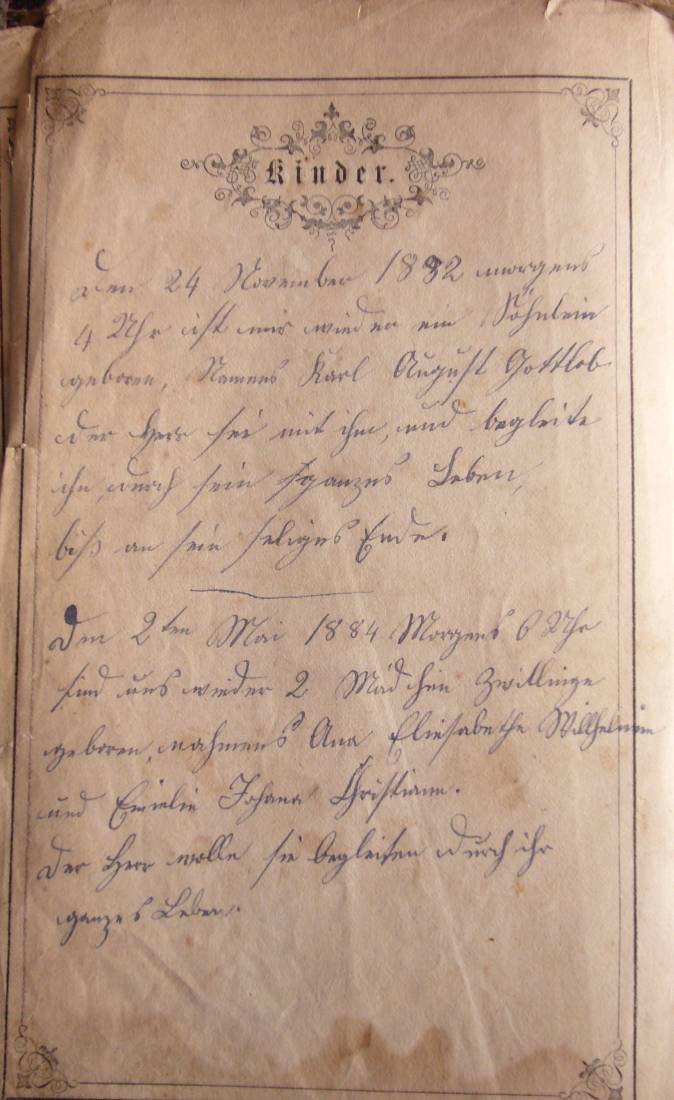 Kinder.
Den 24 November 1882 morgens
4 Uhr ist mir wieder ein Söhnlein
geboren, Namens Karl August Gottlob
der Herr sei mit ihm, und begleite
ihn, durch sein ganzes Leben,
biß an sein seliges Ende.
Den 2ten Mai 1884 Morgens 6 Uhr
sind uns wieder 2 Mädchen Zwillinge
geboren, nahmens Ana Eliesabethe Willhelmine
und Emielie Johana Christiane.
Der Herr wolle sie begleiten durch ihr
ganzes Leben.